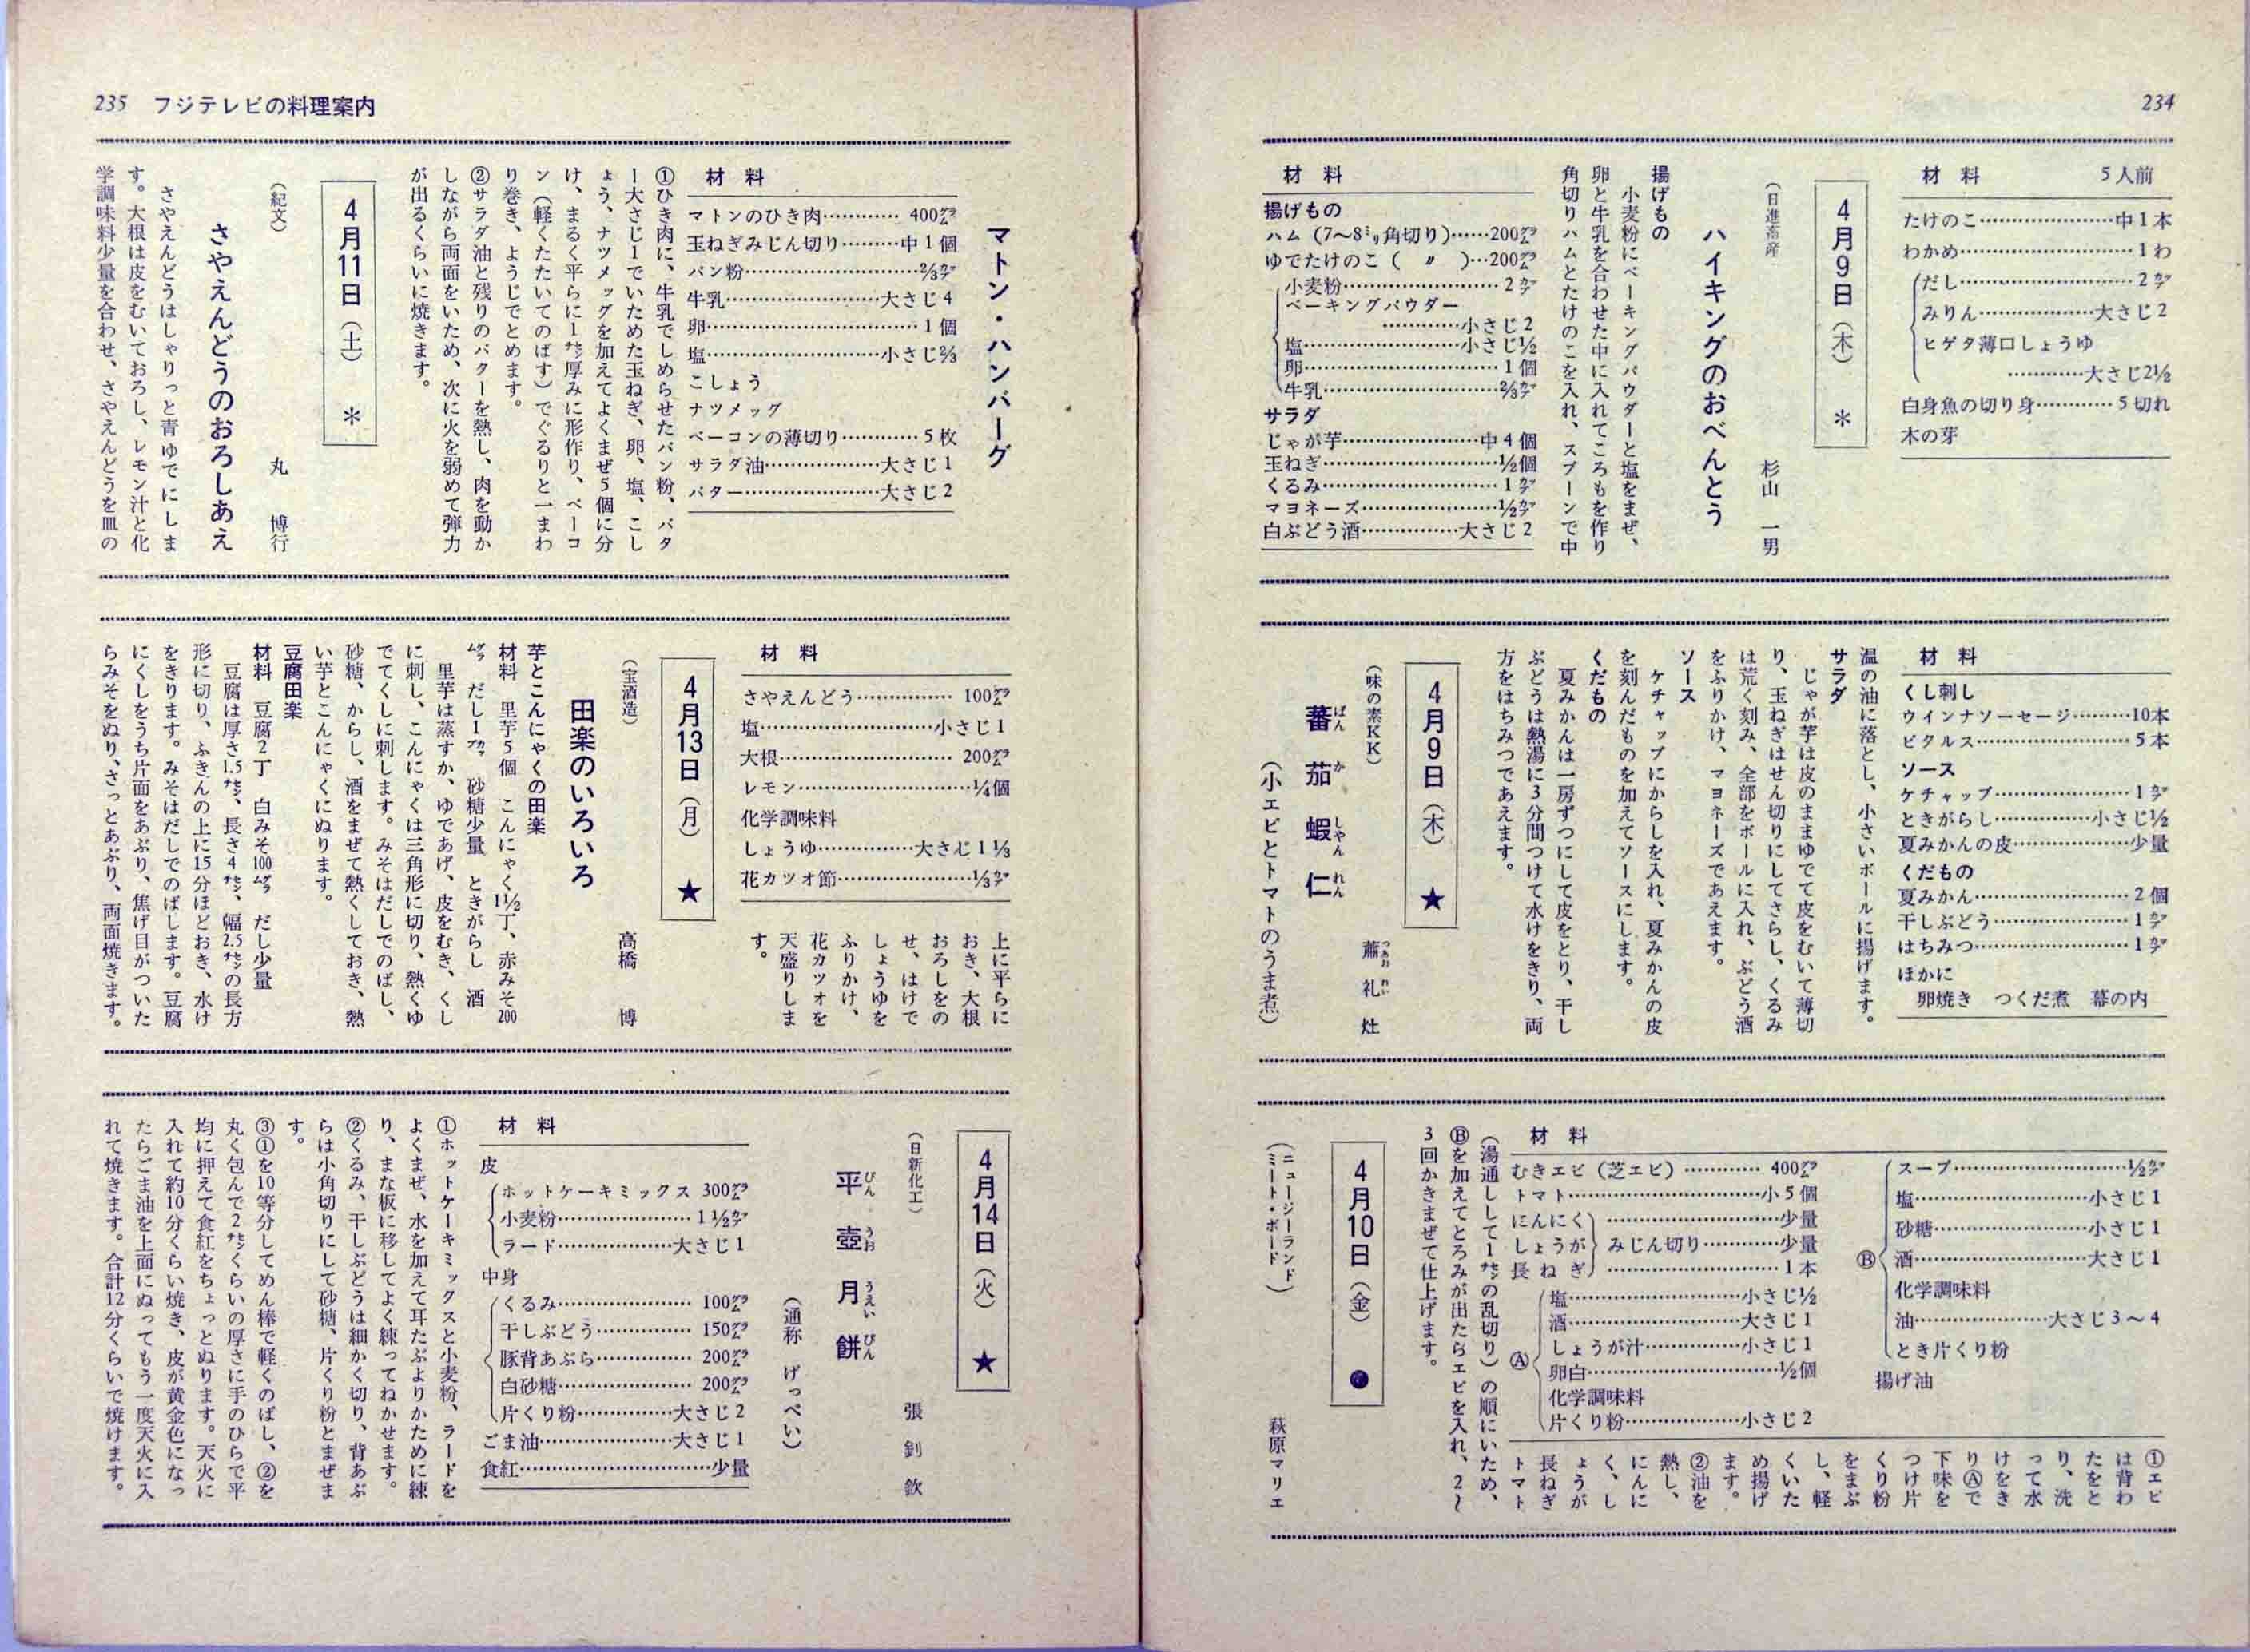 234
材料 5人前
たけのこ……………中1本
わかめ……………1わ
だし……………2カップ
みりん……………大さじ2
ヒゲタ薄口しょうゆ
…………大さじ2½
白身魚の切り身…………5切れ
木の芽
4月9日（木） ＊
（日進畜産） 杉山 一男
ハイキングのおべんとう
揚げもの
小麦粉にベーキングパウダーと塩をまぜ、
卵と牛乳を合わせた中に入れてころもを作り
角切りハムとたけのこを入れ、スプーンで中
材料
揚げもの
ハム（7〜8㍉角切り）……200㌘
ゆでたけのこ（ 〃 ）…200㌘
小麦粉……………2カップ
ベーキングパウダー
…………小さじ2
塩……………小さじ½
卵……………1個
牛乳……………⅔カップ
サラダ
じゃが芋……………中4個
玉ねぎ……………½個
くるみ……………1カップ
マヨネーズ……………½カップ
白ぶどう酒……………大さじ2
材料
くし刺し
ウインナソーセージ………10本
ピクルス……………5本
ソース
ケチャップ……………1カップ
ときがらし……………小さじ½
夏みかんの皮……………少量
くだもの
夏みかん……………2個
干しぶどう……………1カップ
はちみつ……………1カップ
ほかに
卵焼き つくだ煮 幕の内
温の油に落とし、小さいボールに揚げます。
サラダ
じゃが芋は皮のままゆでて皮をむいて薄切
り、玉ねぎはせん切りにしてさらし、くるみ
は荒く刻み、全部をボールに入れ、ぶどう酒
をふりかけ、マヨネーズであえます。
ソース
ケチャップにからしを入れ、夏みかんの皮
を刻んだものを加えてソースにします。
くだもの
夏みかんは一房ずつにして皮をとり、干し
ぶどうは熱湯に3分間つけて水けをきり、両
方をはちみつであえます。
4月9日（木） ★
（味の素KK） 蕭礼灶
蕃茄蝦仁
ばんかしゃんれん
（小エビとトマトのうま煮）
スープ……………½カップ
塩……………小さじ1
砂糖……………小さじ1
Ⓑ 酒……………大さじ1
化学調味料
油……………大さじ3〜4
とき片くり粉
揚げ油
材料
むきエビ（芝エビ）…………400㌘
トマト……………小5個
にんにく ……………少量
しょうが みじん切り…………少量
長ねぎ ……………1本
塩……………小さじ½
酒……………大さじ1
Ⓐ しょうが汁…………小さじ1
卵白……………½個
化学調味料
片くり粉……………小さじ2
①エビ
は背わ
たをと
り、洗
って水
けをき
りⒶで
下味を
つけ片
くり粉
をまぶ
し、軽
くいた
め揚げ
ます。
②油を
熱し、
にんに
く、し
ょうが
長ねぎ
トマト
（湯通しして1㌢の乱切り）の順にいため、
Ⓑを加えてとろみが出たらエビを入れ、2〜
3回かきまぜて仕上げます。
4月10日（金） ●
（ニュージーランド・ミート・ボード） 萩原マリエ
235 フジテレビの料理案内
マトン・ハンバーグ
材料
マトンのひき肉…………400㌘
玉ねぎみじん切り………中1個
パン粉……………⅔カップ
牛乳……………大さじ4
卵……………1個
塩……………小さじ⅔
こしょう
ナツメッグ
ベーコンの薄切り…………5枚
サラダ油……………大さじ1
バター……………大さじ2
①ひき肉に、牛乳でしめらせたパン粉、バタ
ー大さじ1でいためた玉ねぎ、卵、塩、こし
ょう、ナツメッグを加えてよくまぜ5個に分
け、まるく平らに1㌢厚みに形作り、ベーコ
ン（軽くたたいてのばす）でぐるりと一まわ
り巻き、ようじでとめます。
②サラダ油と残りのバターを熱し、肉を動か
しながら両面をいため、次に火を弱めて弾力
が出るくらいに焼きます。
4月11日（土） ＊
（紀文） 丸 博行
さやえんどうのおろしあえ
さやえんどうはしゃりっと青ゆでにしま
す。大根は皮をむいておろし、レモン汁と化
学調味料少量を合わせ、さやえんどうを皿の
材料
さやえんどう……………100㌘
塩……………小さじ1
大根……………200㌘
レモン……………¼個
化学調味料
しょうゆ……………大さじ1⅓
花カツオ節……………⅓カップ
上に平らに
おき、大根
おろしをの
せ、はけで
しょうゆを
ふりかけ、
花カツオを
天盛りしま
す。
4月13日（月） ★
（宝酒造） 高橋 博
田楽のいろいろ
芋とこんにゃくの田楽
材料 里芋5個 こんにゃく1½丁、赤みそ200
㌘ だし1カップ 砂糖少量 ときがらし 酒
里芋は蒸すか、ゆであげ、皮をむき、くし
に刺し、こんにゃくは三角形に切り、熱くゆ
でてくしに刺します。みそはだしでのばし、
砂糖、からし、酒をまぜて熱くしておき、熱
い芋とこんにゃくにぬります。
豆腐田楽
材料 豆腐2丁 白みそ100㌘ だし少量
豆腐は厚さ1.5㌢、長さ4㌢、幅2.5㌢の長方
形に切り、ふきんの上に15分ほどおき、水け
をきります。みそはだしでのばします。豆腐
にくしをうち片面をあぶり、焦げ目がついた
らみそをぬり、さっとあぶり、両面焼きます。
4月14日（火） ★
（日新化工） 張 釗 欽
平壺月餅
びんうおうえいびん
（通称 げっぺい）
材料
皮
ホットケーキミックス 300㌘
小麦粉……………1½カップ
ラード……………大さじ1
中身
くるみ……………100㌘
干しぶどう……………150㌘
豚背あぶら……………200㌘
白砂糖……………200㌘
片くり粉……………大さじ2
ごま油……………大さじ1
食紅……………少量
①ホットケーキミックスと小麦粉、ラードを
よくまぜ、水を加えて耳たぶよりかために練
り、まな板に移してよく練ってねかせます。
②くるみ、干しぶどうは細かく切り、背あぶ
らは小角切りにして砂糖、片くり粉とまぜま
す。
③①を10等分してめん棒で軽くのばし、②を
丸く包んで2㌢くらいの厚さに手のひらで平
均に押えて食紅をちょっとぬります。天火に
入れて約10分くらい焼き、皮が黄金色になっ
たらごま油を上面にぬってもう一度天火に入
れて焼きます。合計12分くらいで焼けます。